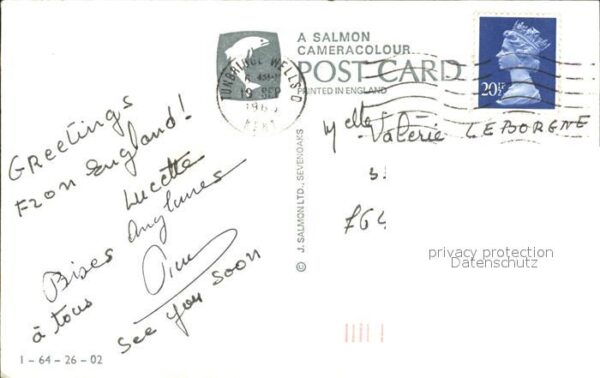 Greetings
From England!
Lucette
Bises Anglaises
à tous
See you soon
1-64-26-02
A SALMON
CAMERACOLOUR
POST CARD
PRINTED IN ENGLAND
© J. SALMON LTD., SEVENOAKS
TUNBRIDGE WELLS
SEP
KENT
20½P
Melle Valérie LEBORGNE
privacy protection
Datenschutz